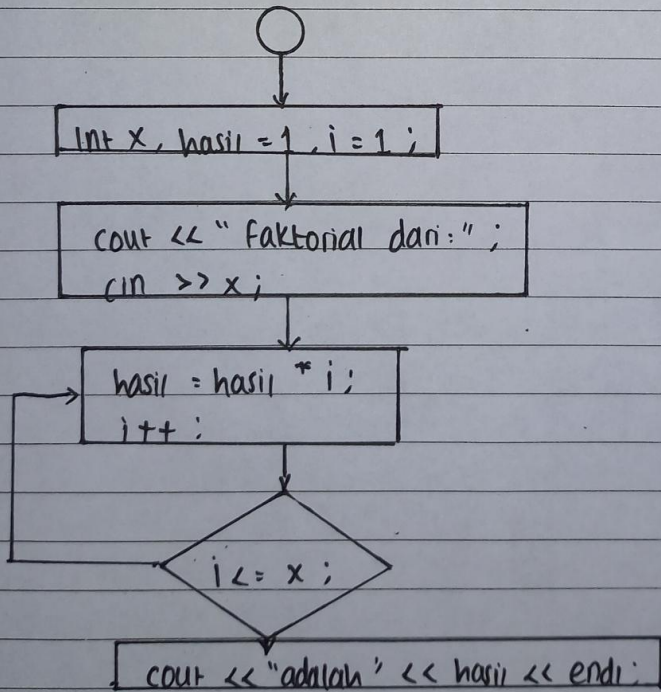 int x, hasil = 1, i = 1 ;
cout << " Faktorial dari : " ;
cin >> x ;
hasil = hasil * i ;
i ++ ;
i <= x ;
cout << "adalah" << hasil << endl ;